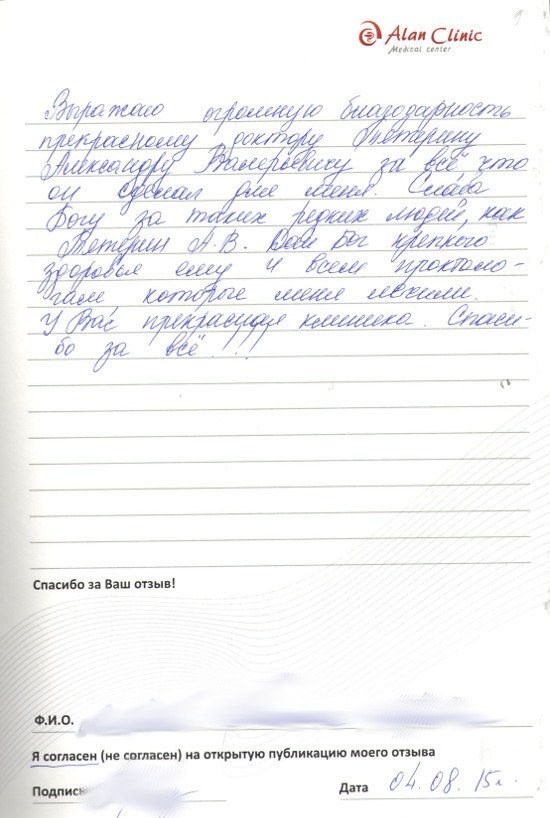 9
Alan Clinic
Medical center
Выражаю огромную благодарность
прекрасному доктору Тетерину
Александру Валерьевичу за всё что
он сделал для меня. Слава
Богу за таких редких людей, как
Тетерин А.В. Дай Бог крепкого
здоровья ему и всем проктоло-
гам, которые меня лечили.
У Вас прекрасная клиника. Спаси-
бо за всё!!!
Спасибо за Ваш отзыв!
Ф.И.О.
Я согласен (не согласен) на открытую публикацию моего отзыва
Подпись Дата 04.08.15г.